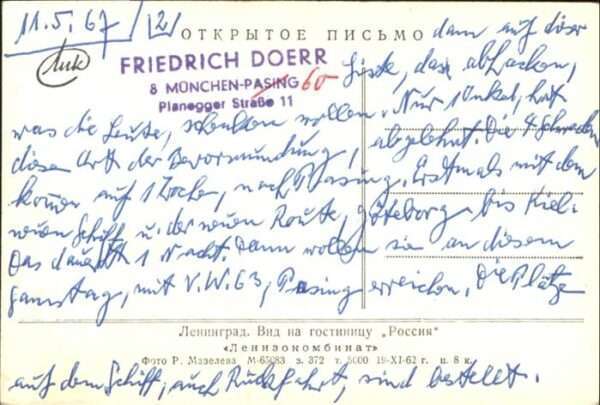 11.5.67 /2/
ОТКРЫТОЕ ПИСЬМО
dann auf dieser
FRIEDRICH DOERR
8 MÜNCHEN-PASING 60
Planegger Straße 11
Liste, das abhacken,
was die Leute, schenken wollen. Nur 1 Onkel, hat
diese Art der Bevormundung, abgelehnt. Die 4 Schweden
kommen auf 1 Woche, nach Pasing. Erstmals mit dem
neuen Schiff u. der neuen Route, Göteborg bis Kiel.
Das dauert 1 Nacht. Dann wollen sie an diesem
Samstag, mit V.W.63, Pasing erreichen. Die Plätze
Ленинград. Вид на гостиницу „Россия"
«Ленизокомбинат»
Фото Р. Мазелева М-65083 з. 372 т. 5000 19-XI-62 г. ц. 8 к.
auf dem Schiff, auch Rückfahrt, sind bestellt.